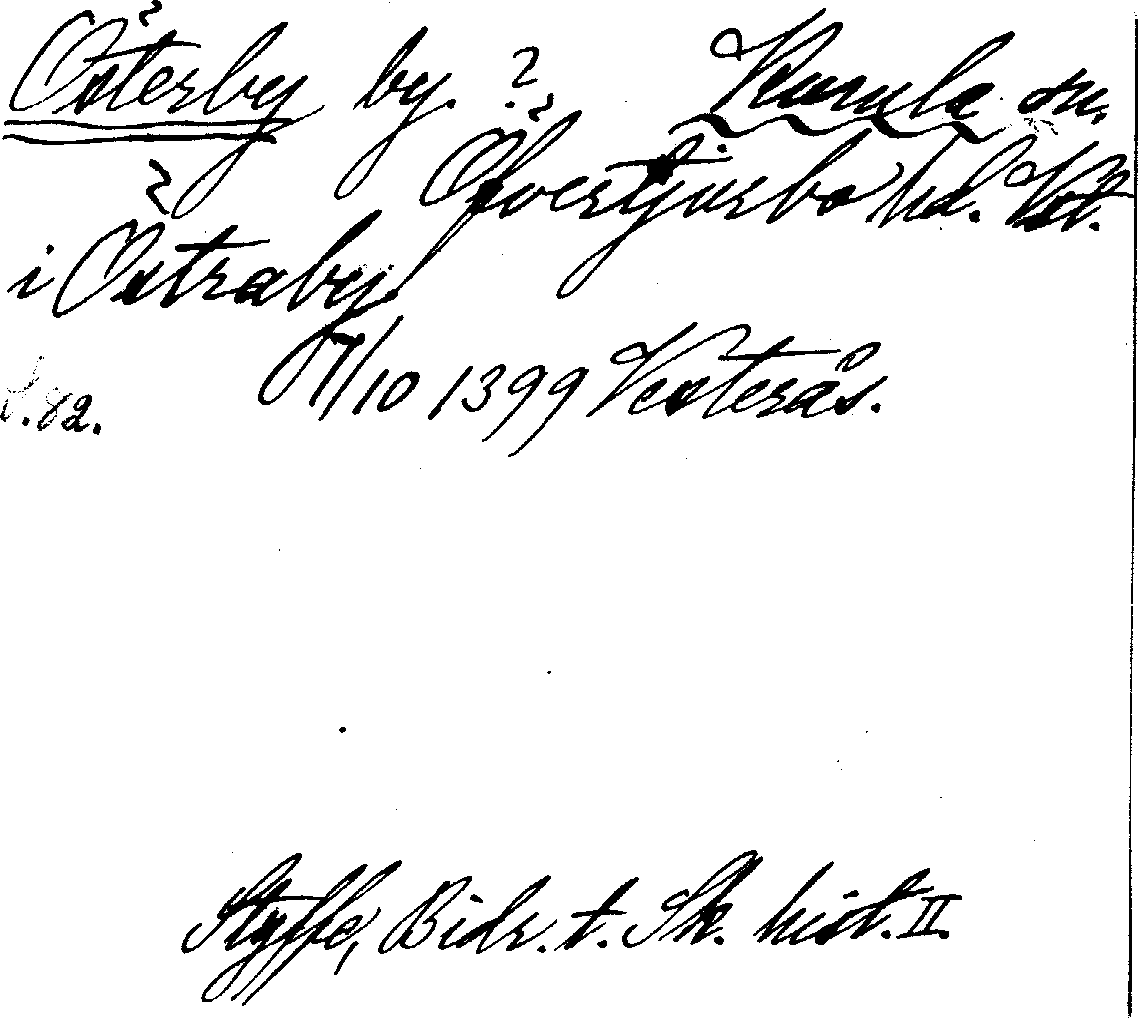 Österby by. ? Kumla sn.
Övertjurbo hd. Vstm.
i Östraby
17/10 1399 Vesterås.
S. 82.
Styffe, Bidr. t. Sk. hist. II.